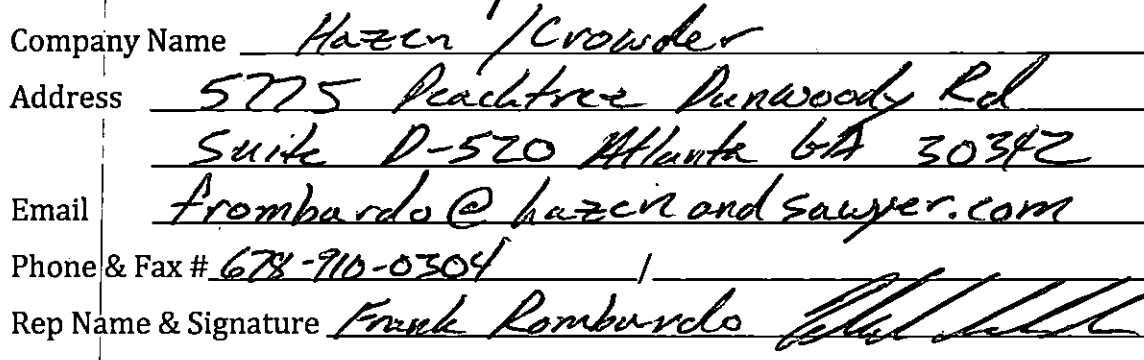 Company Name Hazen / Crowder
Address 5775 Peachtree Dunwoody Rd
Suite D-520 Atlanta GA 30342
Email frombardo@hazenandsawyer.com
Phone & Fax # 678-910-0304 /
Rep Name & Signature Frank Rombardo